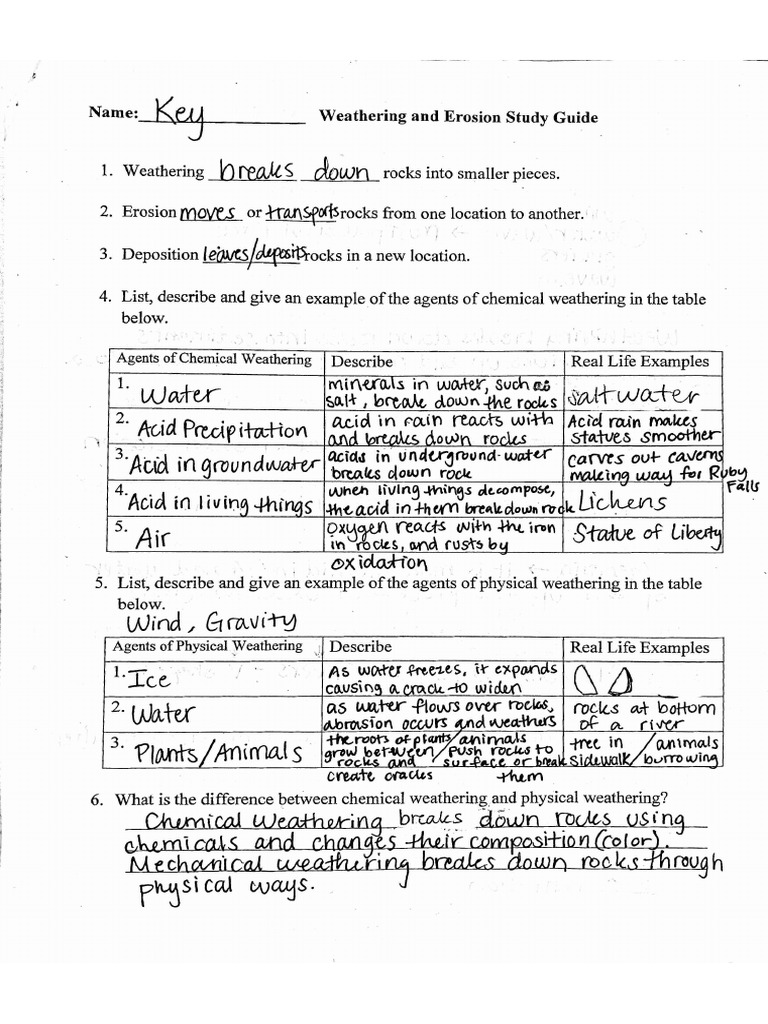 Name: Key Weathering and Erosion Study Guide
1. Weathering breaks down rocks into smaller pieces.
2. Erosion moves or transports rocks from one location to another.
3. Deposition leaves/deposits rocks in a new location.
4. List, describe and give an example of the agents of chemical weathering in the table
below.
Agents of Chemical Weathering Describe Real Life Examples
1. Water minerals in water, such as
salt, break down the rocks saltwater
2. Acid Precipitation acid in rain reacts with
and breaks down rocks Acid rain makes
statues smoother
3. Acid in groundwater acids in underground water
breaks down rock carves out caverns
making way for Ruby
Falls
4. Acid in living things when living things decompose,
the acid in them break down rock Lichens
5. Air Oxygen reacts with the iron
in rocks, and rusts by
oxidation Statue of Liberty
5. List, describe and give an example of the agents of physical weathering in the table
below.
Wind, Gravity
Agents of Physical Weathering Describe Real Life Examples
1. Ice As water freezes, it expands
causing a crack to widen
2. Water as water flows over rocks,
abrasion occurs and weathers rocks at bottom
of a river
3. Plants/Animals the roots of plants/animals
grow between/push rocks to
rocks and/surface or break
create cracks them
tree in/animals
sidewalk/burrowing
6. What is the difference between chemical weathering and physical weathering?
Chemical Weathering breaks down rocks using
chemicals and changes their composition (color).
Mechanical weathering breaks down rocks through
physical ways.